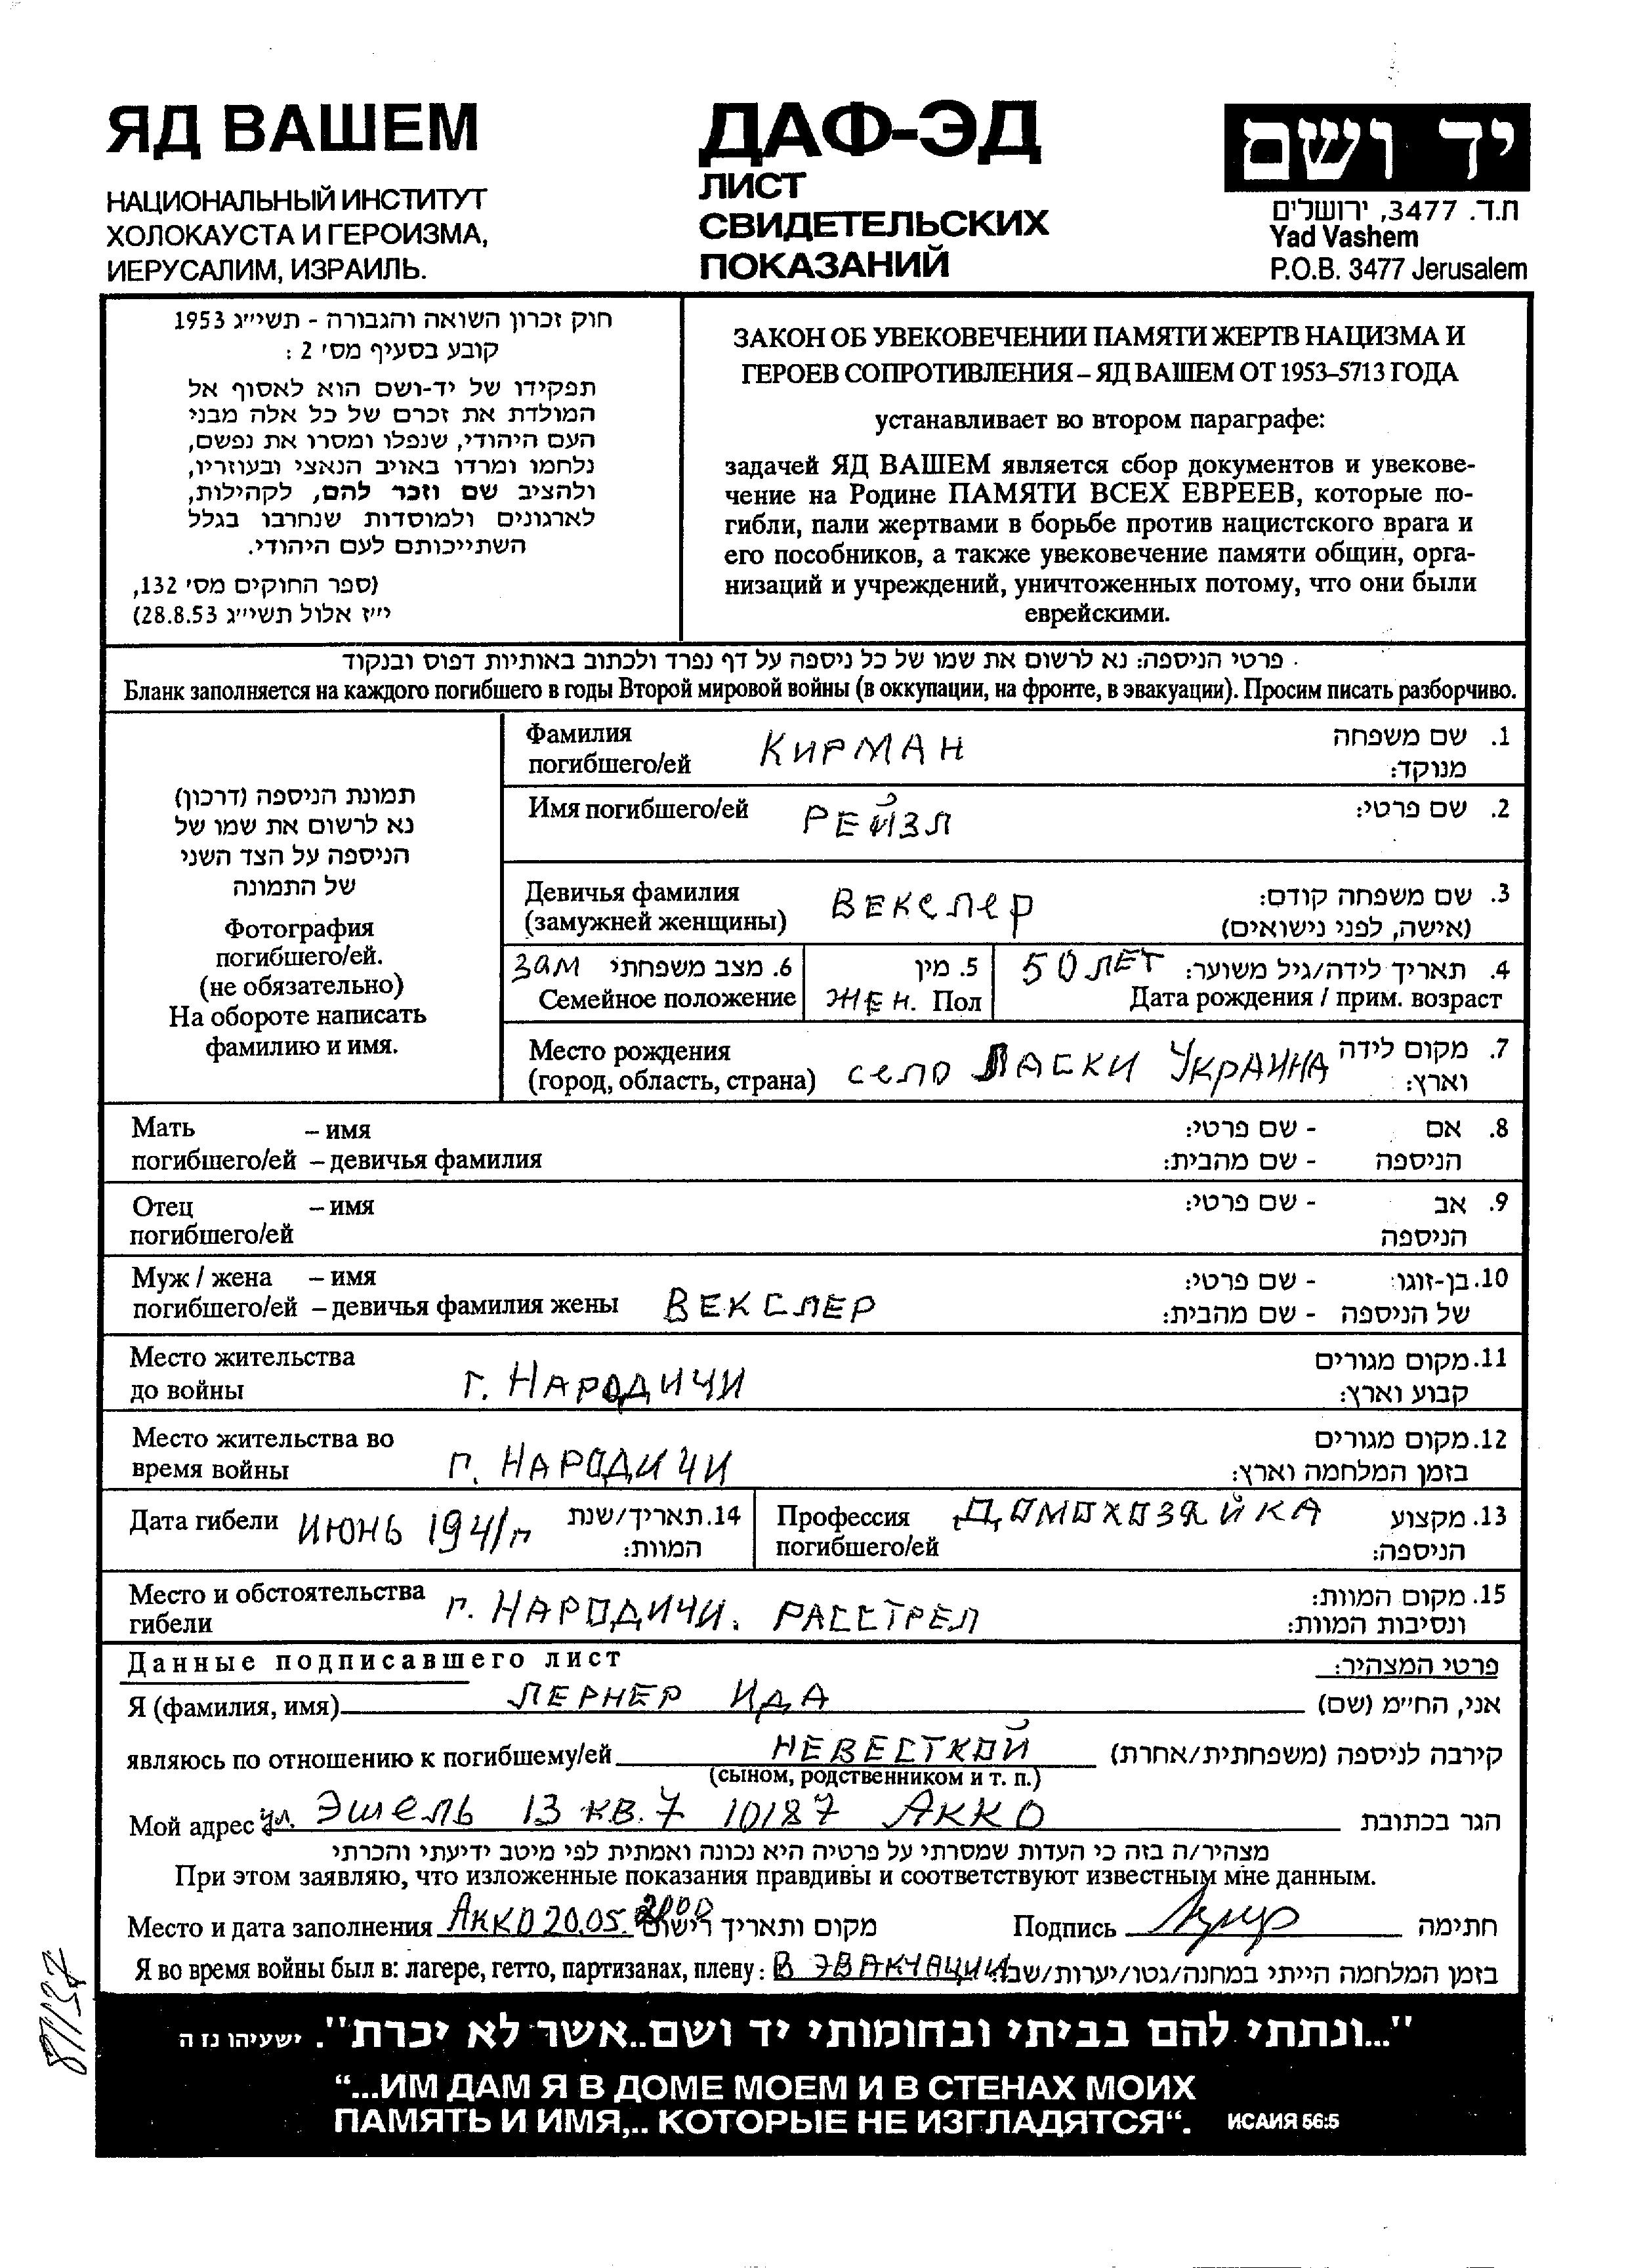 ЯД ВАШЕМ
НАЦИОНАЛЬНЫЙ ИНСТИТУТ
ХОЛОКАУСТА И ГЕРОИЗМА,
ИЕРУСАЛИМ, ИЗРАИЛЬ.
ДАФ-ЭД
ЛИСТ
СВИДЕТЕЛЬСКИХ
ПОКАЗАНИЙ
יד ושם
ת.ד. 3477, ירושלים
Yad Vashem
P.O.B. 3477 Jerusalem
חוק זכרון השואה והגבורה - תשי״ג 1953
קובע בסעיף מס׳ 2 :
תפקידו של יד-ושם הוא לאסוף אל
המולדת את זכרם של כל אלה מבני
העם היהודי, שנפלו ומסרו את נפשם,
נלחמו ומרדו באויב הנאצי ובעוזריו,
ולהציב שם וזכר להם, לקהילות,
לארגונים ולמוסדות שנחרבו בגלל
השתייכותם לעם היהודי.
(ספר החוקים מס׳ 132,
י״ז אלול תשי״ג 28.8.53)
ЗАКОН ОБ УВЕКОВЕЧЕНИИ ПАМЯТИ ЖЕРТВ НАЦИЗМА И
ГЕРОЕВ СОПРОТИВЛЕНИЯ – ЯД ВАШЕМ ОТ 1953–5713 ГОДА
устанавливает во втором параграфе:
задачей ЯД ВАШЕМ является сбор документов и увекове-
чение на Родине ПАМЯТИ ВСЕХ ЕВРЕЕВ, которые по-
гибли, пали жертвами в борьбе против нацистского врага и
его пособников, а также увековечение памяти общин, орга-
низаций и учреждений, уничтоженных потому, что они были
еврейскими.
פרטי הניספה: נא לרשום את שמו של כל ניספה על דף נפרד ולכתוב באותיות דפוס ובנקוד
Бланк заполняется на каждого погибшего в годы Второй мировой войны (в оккупации, на фронте, в эвакуации). Просим писать разборчиво.
תמונת הניספה (דרכון)
נא לרשום את שמו של
הניספה על הצד השני
של התמונה
Фотография
погибшего/ей.
(не обязательно)
На обороте написать
фамилию и имя.
Фамилия КИРМАН 1. שם משפחה
погибшего/ей מנוקד:
Имя погибшего/ей РЕЙЗЛ 2. שם פרטי:
Девичья фамилия ВЕКСЛЕР 3. שם משפחה קודם:
(замужней женщины) (אישה, לפני נישואים)
ЗАМ 6. מצב משפחתי 5. מין 50 ЛЕТ 4. תאריך לידה/גיל משוער:
Семейное положение ЖЕН. Пол Дата рождения / прим. возраст
Место рождения село ЛАСКИ УКРАИНА 7. מקום לידה
(город, область, страна) וארץ:
Мать – имя 8. אם - שם פרטי:
погибшего/ей – девичья фамилия הניספה - שם מהבית:
Отец – имя 9. אב - שם פרטי:
погибшего/ей הניספה
Муж / жена – имя 10. בן-זוגו - שם פרטי:
погибшего/ей – девичья фамилия жены ВЕКСЛЕР של הניספה - שם מהבית:
Место жительства 11. מקום מגורים
до войны г. НАРОДИЧИ קבוע וארץ:
Место жительства во 12. מקום מגורים
время войны г. НАРОДИЧИ בזמן המלחמה וארץ:
Дата гибели ИЮНЬ 1941 г 14. תאריך/שנת המוות:
Профессия ДОМОХОЗЯЙКА 13. מקצוע
погибшего/ей הניספה:
Место и обстоятельства г. НАРОДИЧИ. РАССТРЕЛ 15. מקום המוות:
гибели ונסיבות המוות:
Данные подписавшего лист פרטי המצהיר:
Я (фамилия, имя) ЛЕРНЕР ИДА אני, הח״מ (שם)
являюсь по отношению к погибшему/ей НЕВЕСТКОЙ קירבה לניספה (משפחתית/אחרת)
(сыном, родственником и т. п.)
Мой адрес ул. Эшель 13 кв. 7 10187 АККО הגר בכתובת
מצהיר/ה בזה כי העדות שמסרתי על פרטיה היא נכונה ואמתית לפי מיטב ידיעתי והכרתי
При этом заявляю, что изложенные показания правдивы и соответствуют известным мне данным.
Место и дата заполнения АККО 20.05.2000 מקום ותאריך רישום Подпись חתימה
Я во время войны был в: лагере, гетто, партизанах, плену: В ЭВАКУАЦИИ בזמן המלחמה הייתי במחנה/גטו/יערות/שבי:
87/137
"...ונתתי להם בביתי ובחומותי יד ושם..אשר לא יכרת". ישעיהו נז ה
“...ИМ ДАМ Я В ДОМЕ МОЕМ И В СТЕНАХ МОИХ
ПАМЯТЬ И ИМЯ,.. КОТОРЫЕ НЕ ИЗГЛАДЯТСЯ“. ИСАИЯ 56:5